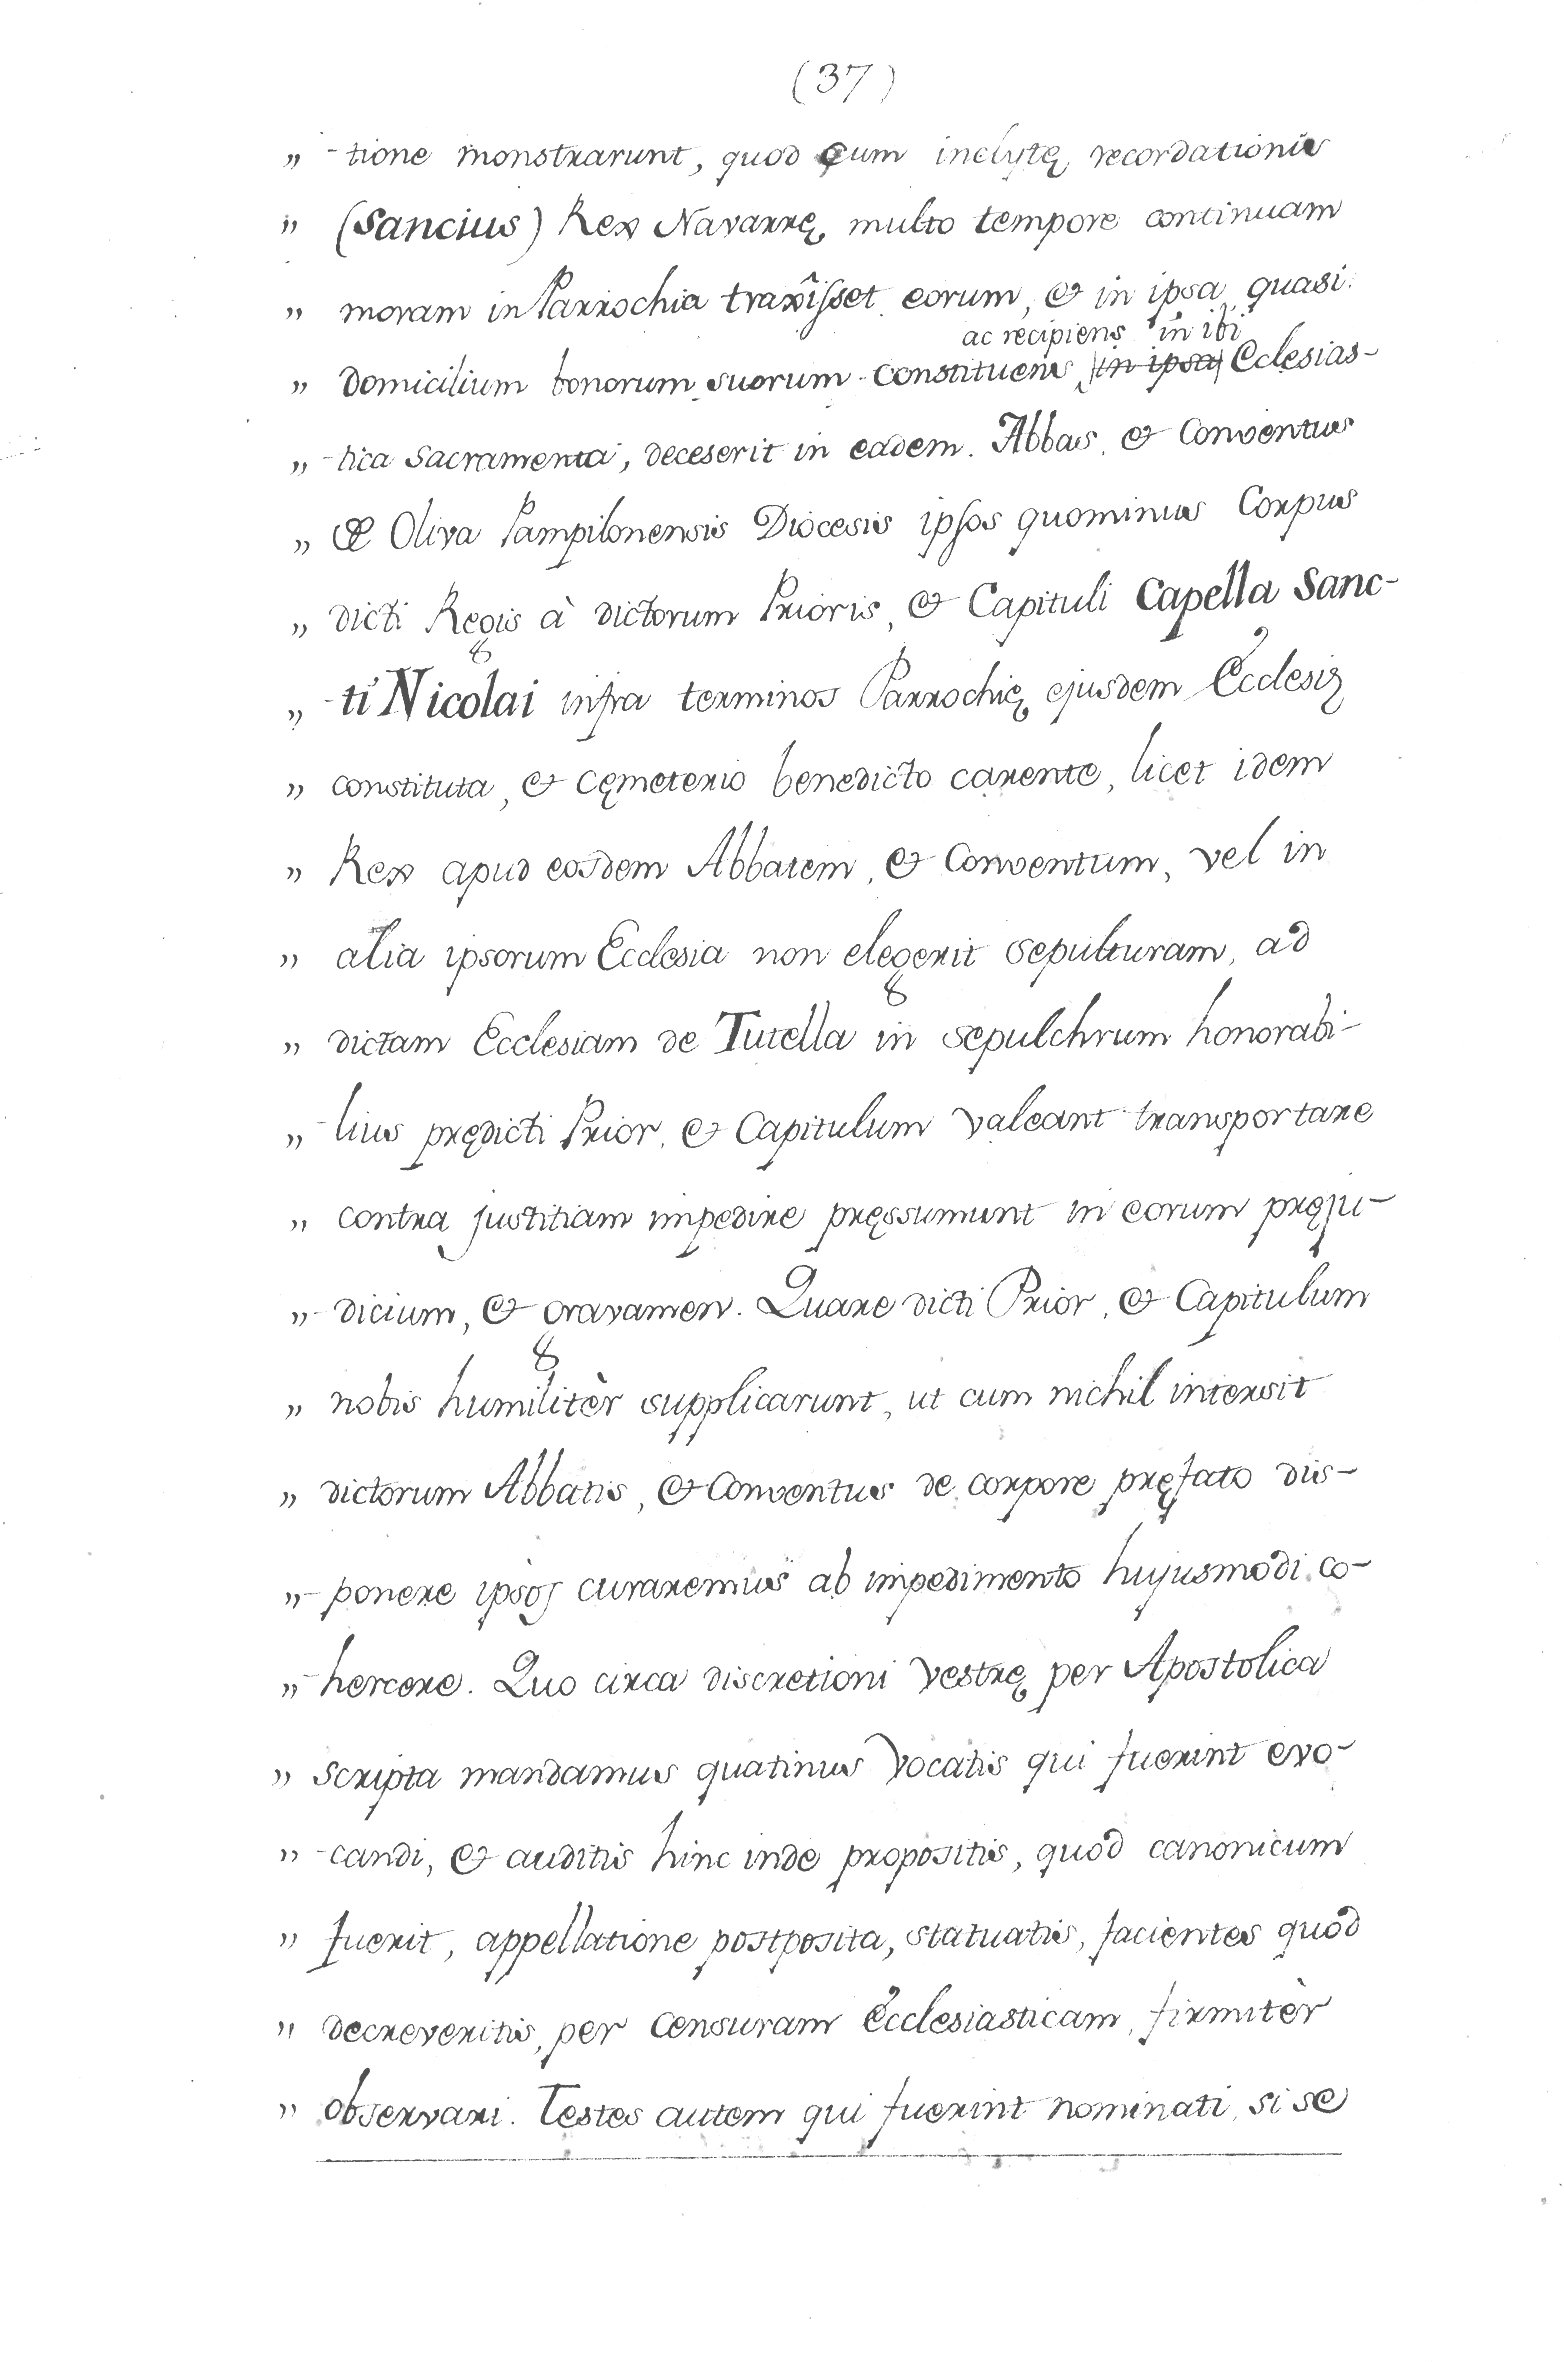 (37)
„ -tione monstrarunt, quod cum inclytę recordationis
„ (Sancius) Rex Navarrę, multo tempore continuam
„ moram in Parrochia traxîsset eorum, & in ipsa quasi
ac recipiens in ibi
„ domicilium bonorum suorum constituens, (in ipsa) Eclesias-
„ -tica Sacramenta, deceserit in eadem. Abbas, & Conventus
„ de Oliva Pampilonensis Diocesis ipsos quominus Corpus
„ dicti Regis à dictorum Prioris, & Capituli Capella Sanc-
„ -ti Nicolai infra terminos Parrochię ejusdem Ecclesię
„ constituta, & cęmeterio benedicto carente, licet idem
„ Rex apud eosdem Abbatem, & Conventum, vel in
„ alia ipsorum Ecclesia non elegerit sepulturam, ad
„ dictam Ecclesiam de Tutella in sepulchrum honorabi-
„ -lius prędicti Prior, & Capitulum valeant transportare
„ contra justitiam impedire pręssumunt in eorum pręju-
„ -dicium, & gravamen. Quare dicti Prior, & Capitulum
„ nobis humilitèr supplicarunt, ut cum nichil intersit
„ dictorum Abbatis, & Conventus de corpore pręfato dis-
„ -ponere ipsos curaremus ab impedimento hujusmodi co-
„ -hercere. Quo circa discretioni vestrę per Apostolica
„ scripta mandamus quatinus vocatis qui fuerint evo-
„ -candi, & auditis hinc inde propositis, quod canonicum
„ fuerit, appellatione postposita, statuatis, facientes quod
„ decreveritis, per censuram Ecclesiasticam, firmitèr
„ observari. Testes autem qui fuerint nominati, si se